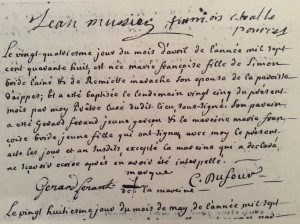 Jean musiey françois choalle
pourret
Le vingt quatriesme jour du mois d'avril de l'année mil sept
cent quarante huit, est née marie françoise fille de Simon
borde lainé & de Remiette masache son epouse de la paroisse
d'aippes; et a été baptisée le lendemain vingt cinq du présent
mois par moy Prêtre Curé dudit lieu sous-signé. Son parrain
a été Gerard Ferand jeune garçon & la marainne marie fran-
çoise borde jeune fille qui ont signez avec moy le présent
acte les jour et an susdits, excepté la marainne qui a declaré
ne scavoir ecrire apres en avoir été interpellé.
marque
Gerard ferant de la maraine C. Dufour
Le vingt huitiesme jour du mois de may de l'année mil sept